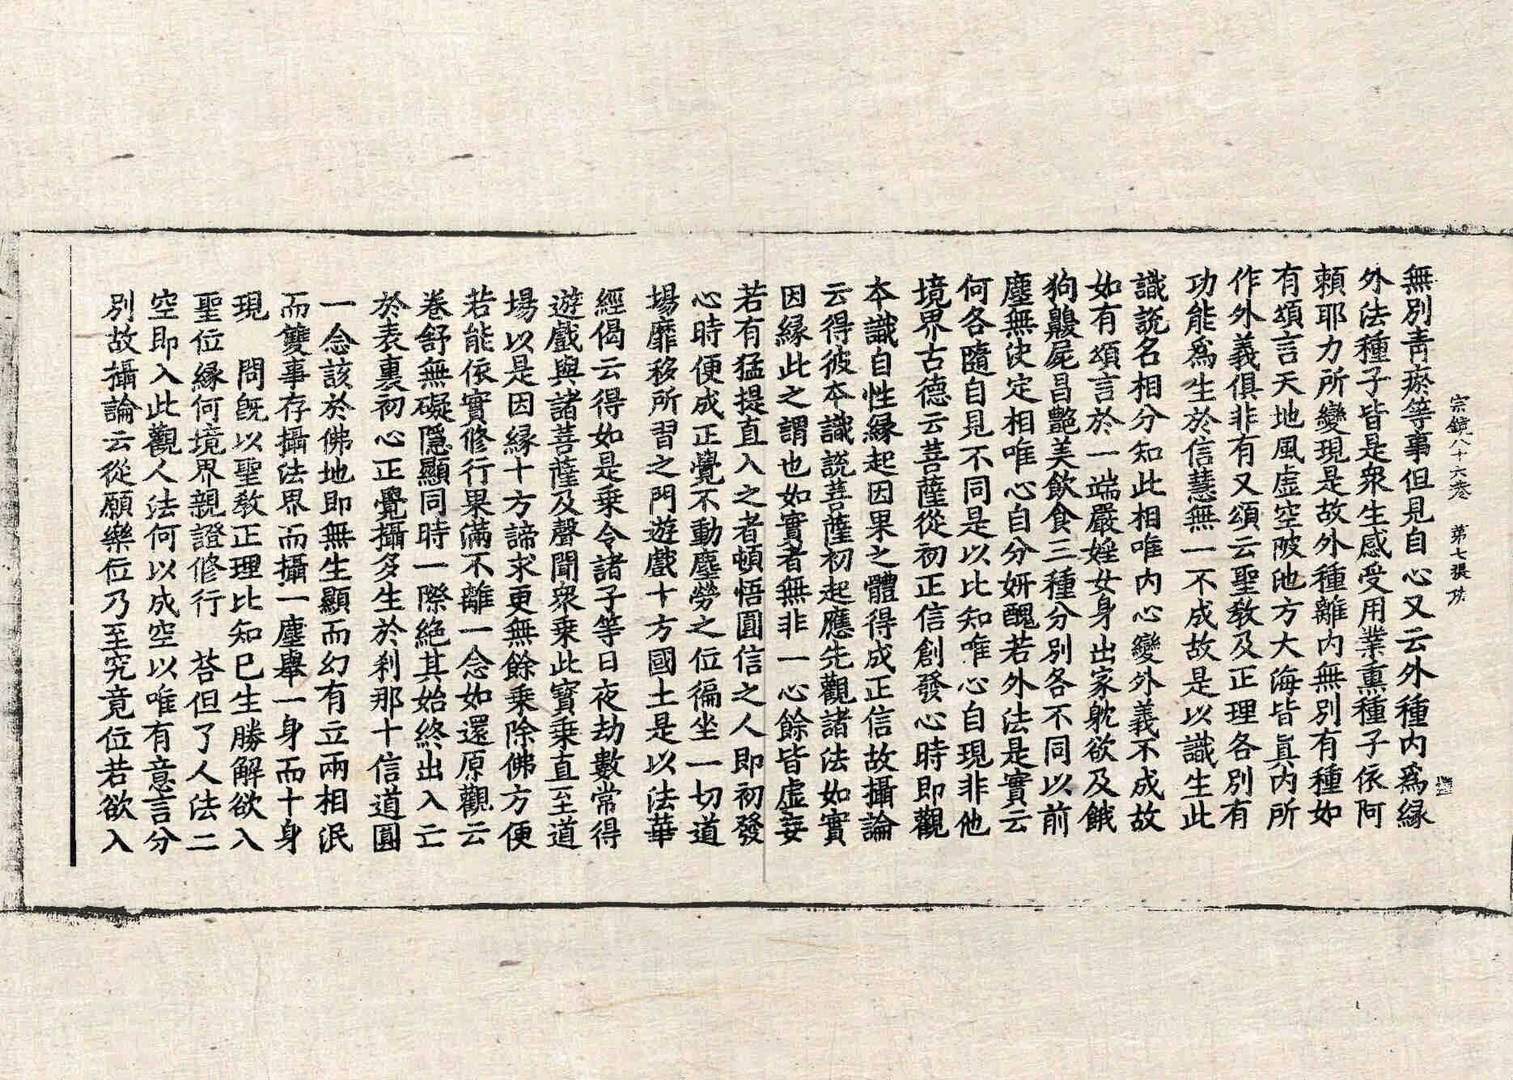 宗鏡八十六卷　第七張
無別青瘀等事但見自心又云外種內為緣
外法種子皆是衆生感受用業熏種子依阿
賴耶力所變現是故外種離內無別有種如
有頌言天地風虛空陂池方大海皆真內所
作外義俱非有又頌云聖教及正理各別有
功能為生於信慧無一不成故是以識生此
識說名相分知此相唯內心變外義不成故
如有頌言於一端嚴婬女身出家躭欲及餓
狗臭屍昌艷美飲食三種分別各不同以前
塵無決定相唯心自分妍醜若外法是實云
何各隨自見不同是以比知唯心自現非他
境界古德云菩薩從初正信創發心時即觀
本識自性緣起因果之體得成正信故攝論
云得彼本識說菩薩初起應先觀諸法如實
因緣此之謂也如實者無非一心餘皆虛妄
若有猛提直入之者頓悟圓信之人即初發
心時便成正覺不動塵勞之位徧坐一切道
場靡移所習之門遊戲十方國土是以法華
經偈云得如是乘令諸子等日夜劫數常得
遊戲與諸菩薩及聲聞衆乘此寶乘直至道
場以是因緣十方諦求更無餘乘除佛方便
若能依實修行果滿不離一念如還原觀云
卷舒無礙隱顯同時一際絕其始終出入亡
於表裏初心正覺攝多生於剎那十信道圓
一念該於佛地即無生顯而幻有立兩相泯
而雙事存攝法界而攝一塵舉一身而十身
現　問既以聖教正理比知已生勝解欲入
聖位緣何境界親證修行　荅但了人法二
空即入此觀人法何以成空以唯有意言分
別故攝論云從願樂位乃至究竟位若欲入